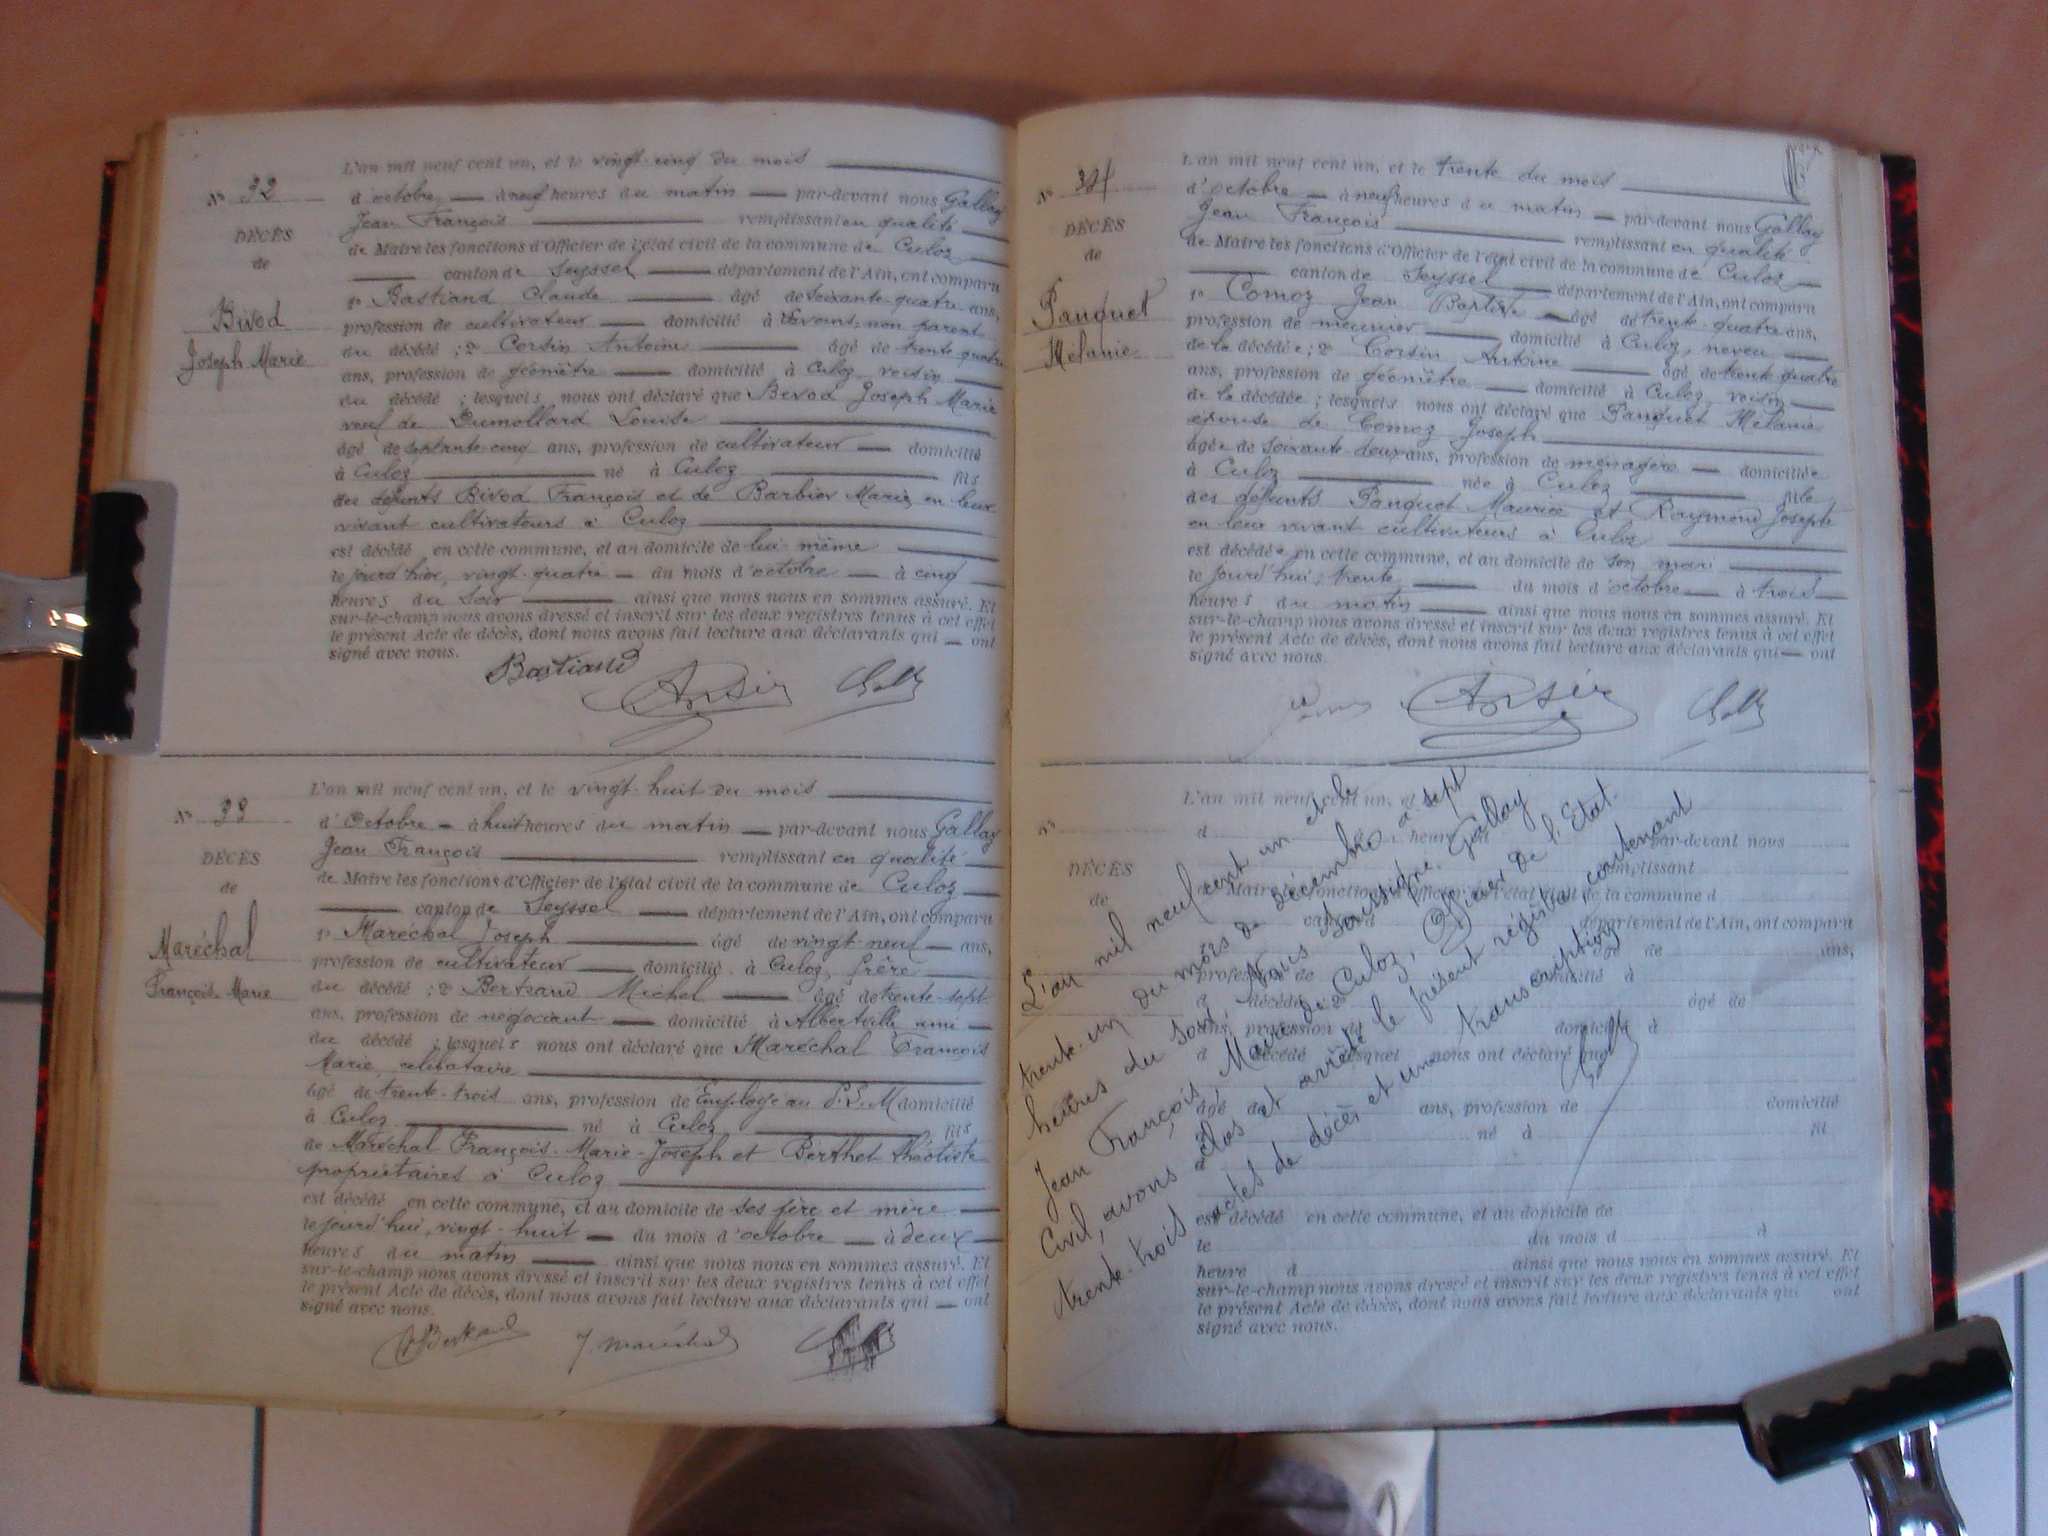 L'an mil neuf cent un, et le vingt-cinq du mois
N° 32
d'octobre à neuf heures du matin par-devant nous Gallay
Jean François remplissant en qualité
DÉCÈS
de Maire les fonctions d'Officier de l'état civil de la commune de Culoz
de
canton de Seyssel département de l'Ain, ont comparu
1° Bastiand Claude âgé de soixante-quatre ans,
Bivod
profession de cultivateur domicilié à non parent
Joseph Marie
du décédé ; 2° Corsin Antoine âgé de trente-quatre
ans, profession de géomètre domicilié à Culoz, voisin
du décédé ; lesquels nous ont déclaré que Bivod Joseph Marie
veuf de Dumollard Louise
âgé de septante-cinq ans, profession de cultivateur domicilié
à Culoz né à Culoz fils
des défunts Bivod François et de Barbier Marie en leur
vivant cultivateurs à Culoz
est décédé en cette commune, et au domicile de lui-même
le jourd'hier, vingt-quatre du mois d'octobre à cinq
heures du soir ainsi que nous nous en sommes assuré. Et
sur-le-champ nous avons dressé et inscrit sur les deux registres tenus à cet effet
le présent Acte de décès, dont nous avons fait lecture aux déclarants qui ont
signé avec nous.
Bastiand
L'an mil neuf cent un, et le vingt-huit du mois
N° 33
d'Octobre à huit heures du matin par-devant nous Gallay
Jean François remplissant en qualité
DÉCÈS
de Maire les fonctions d'Officier de l'état civil de la commune de Culoz
de
canton de Seyssel département de l'Ain, ont comparu
1° Maréchal Joseph âgé de vingt-neuf ans,
Maréchal
profession de cultivateur domicilié à Culoz, frère
François-Marie
du décédé ; 2° Bertrand Michel âgé de trente-sept
ans, profession de négociant domicilié à Albertville ami
du décédé ; lesquels nous ont déclaré que Maréchal François
Marie, célibataire
âgé de trente-trois ans, profession de Employé au P.L.M domicilié
à Culoz né à Culoz fils
de Maréchal François-Marie-Joseph et Berthet Théotiste
propriétaires à Culoz
est décédé en cette commune, et au domicile de ses père et mère
le jourd'hui, vingt-huit du mois d'octobre à deux
heures du matin ainsi que nous nous en sommes assuré. Et
sur-le-champ nous avons dressé et inscrit sur les deux registres tenus à cet effet
le présent Acte de décès, dont nous avons fait lecture aux déclarants qui ont
signé avec nous.
J. Maréchal
L'an mil neuf cent un, et le trente du mois
N° 34
d'octobre à neuf heures du matin par-devant nous Gallay
Jean François remplissant en qualité
DÉCÈS
de Maire les fonctions d'Officier de l'état civil de la commune de Culoz
de
canton de Seyssel département de l'Ain, ont comparu
1° Comoz Jean Baptiste âgé de trente-quatre ans,
Panquet
profession de meunier domicilié à Culoz, neveu
Mélanie
de la décédée ; 2° Corsin Antoine âgé de trente quatre
ans, profession de géomètre domicilié à Culoz, voisin
de la décédée ; lesquels nous ont déclaré que Panquet Mélanie
épouse de Comoz Joseph
âgée de soixante-deux ans, profession de ménagère domiciliée
à Culoz née à Culoz fille
des défunts Panquet Maurice et Raymond Josephte
en leur vivant cultivateurs à Culoz
est décédée en cette commune, et au domicile de son mari
le jourd'hui, trente du mois d'octobre à trois
heures du matin ainsi que nous nous en sommes assuré. Et
sur-le-champ nous avons dressé et inscrit sur les deux registres tenus à cet effet
le présent Acte de décès, dont nous avons fait lecture aux déclarants qui ont
signé avec nous.
L'an mil neuf cent un, et
N°
d à heure par-devant nous
remplissant
DÉCÈS
de Maire les fonctions d'Officier de l'état civil de la commune d
de
canton d département de l'Ain, ont comparu
âgé de ans,
profession de domicilié à
d décédé ; 2° âgé de
ans, profession de domicilié à
d décédé lesquel nous ont déclaré que
âgé de ans, profession de domicilié
à né à fil
est décédé en cette commune, et au domicile de
le du mois d à
heure d ainsi que nous nous en sommes assuré. Et
sur-le-champ nous avons dressé et inscrit sur les deux registres tenus à cet effet
le présent Acte de décès, dont nous avons fait lecture aux déclarants qui ont
signé avec nous.
L'an mil neuf cent un et le
trente-un du mois de décembre à sept
heures du soir, Nous soussigné Gallay
Jean François, Maire de Culoz, Officier de l'Etat
Civil, avons clos et arrêté le présent régistre contenant
trente-trois actes de décès et une transcription